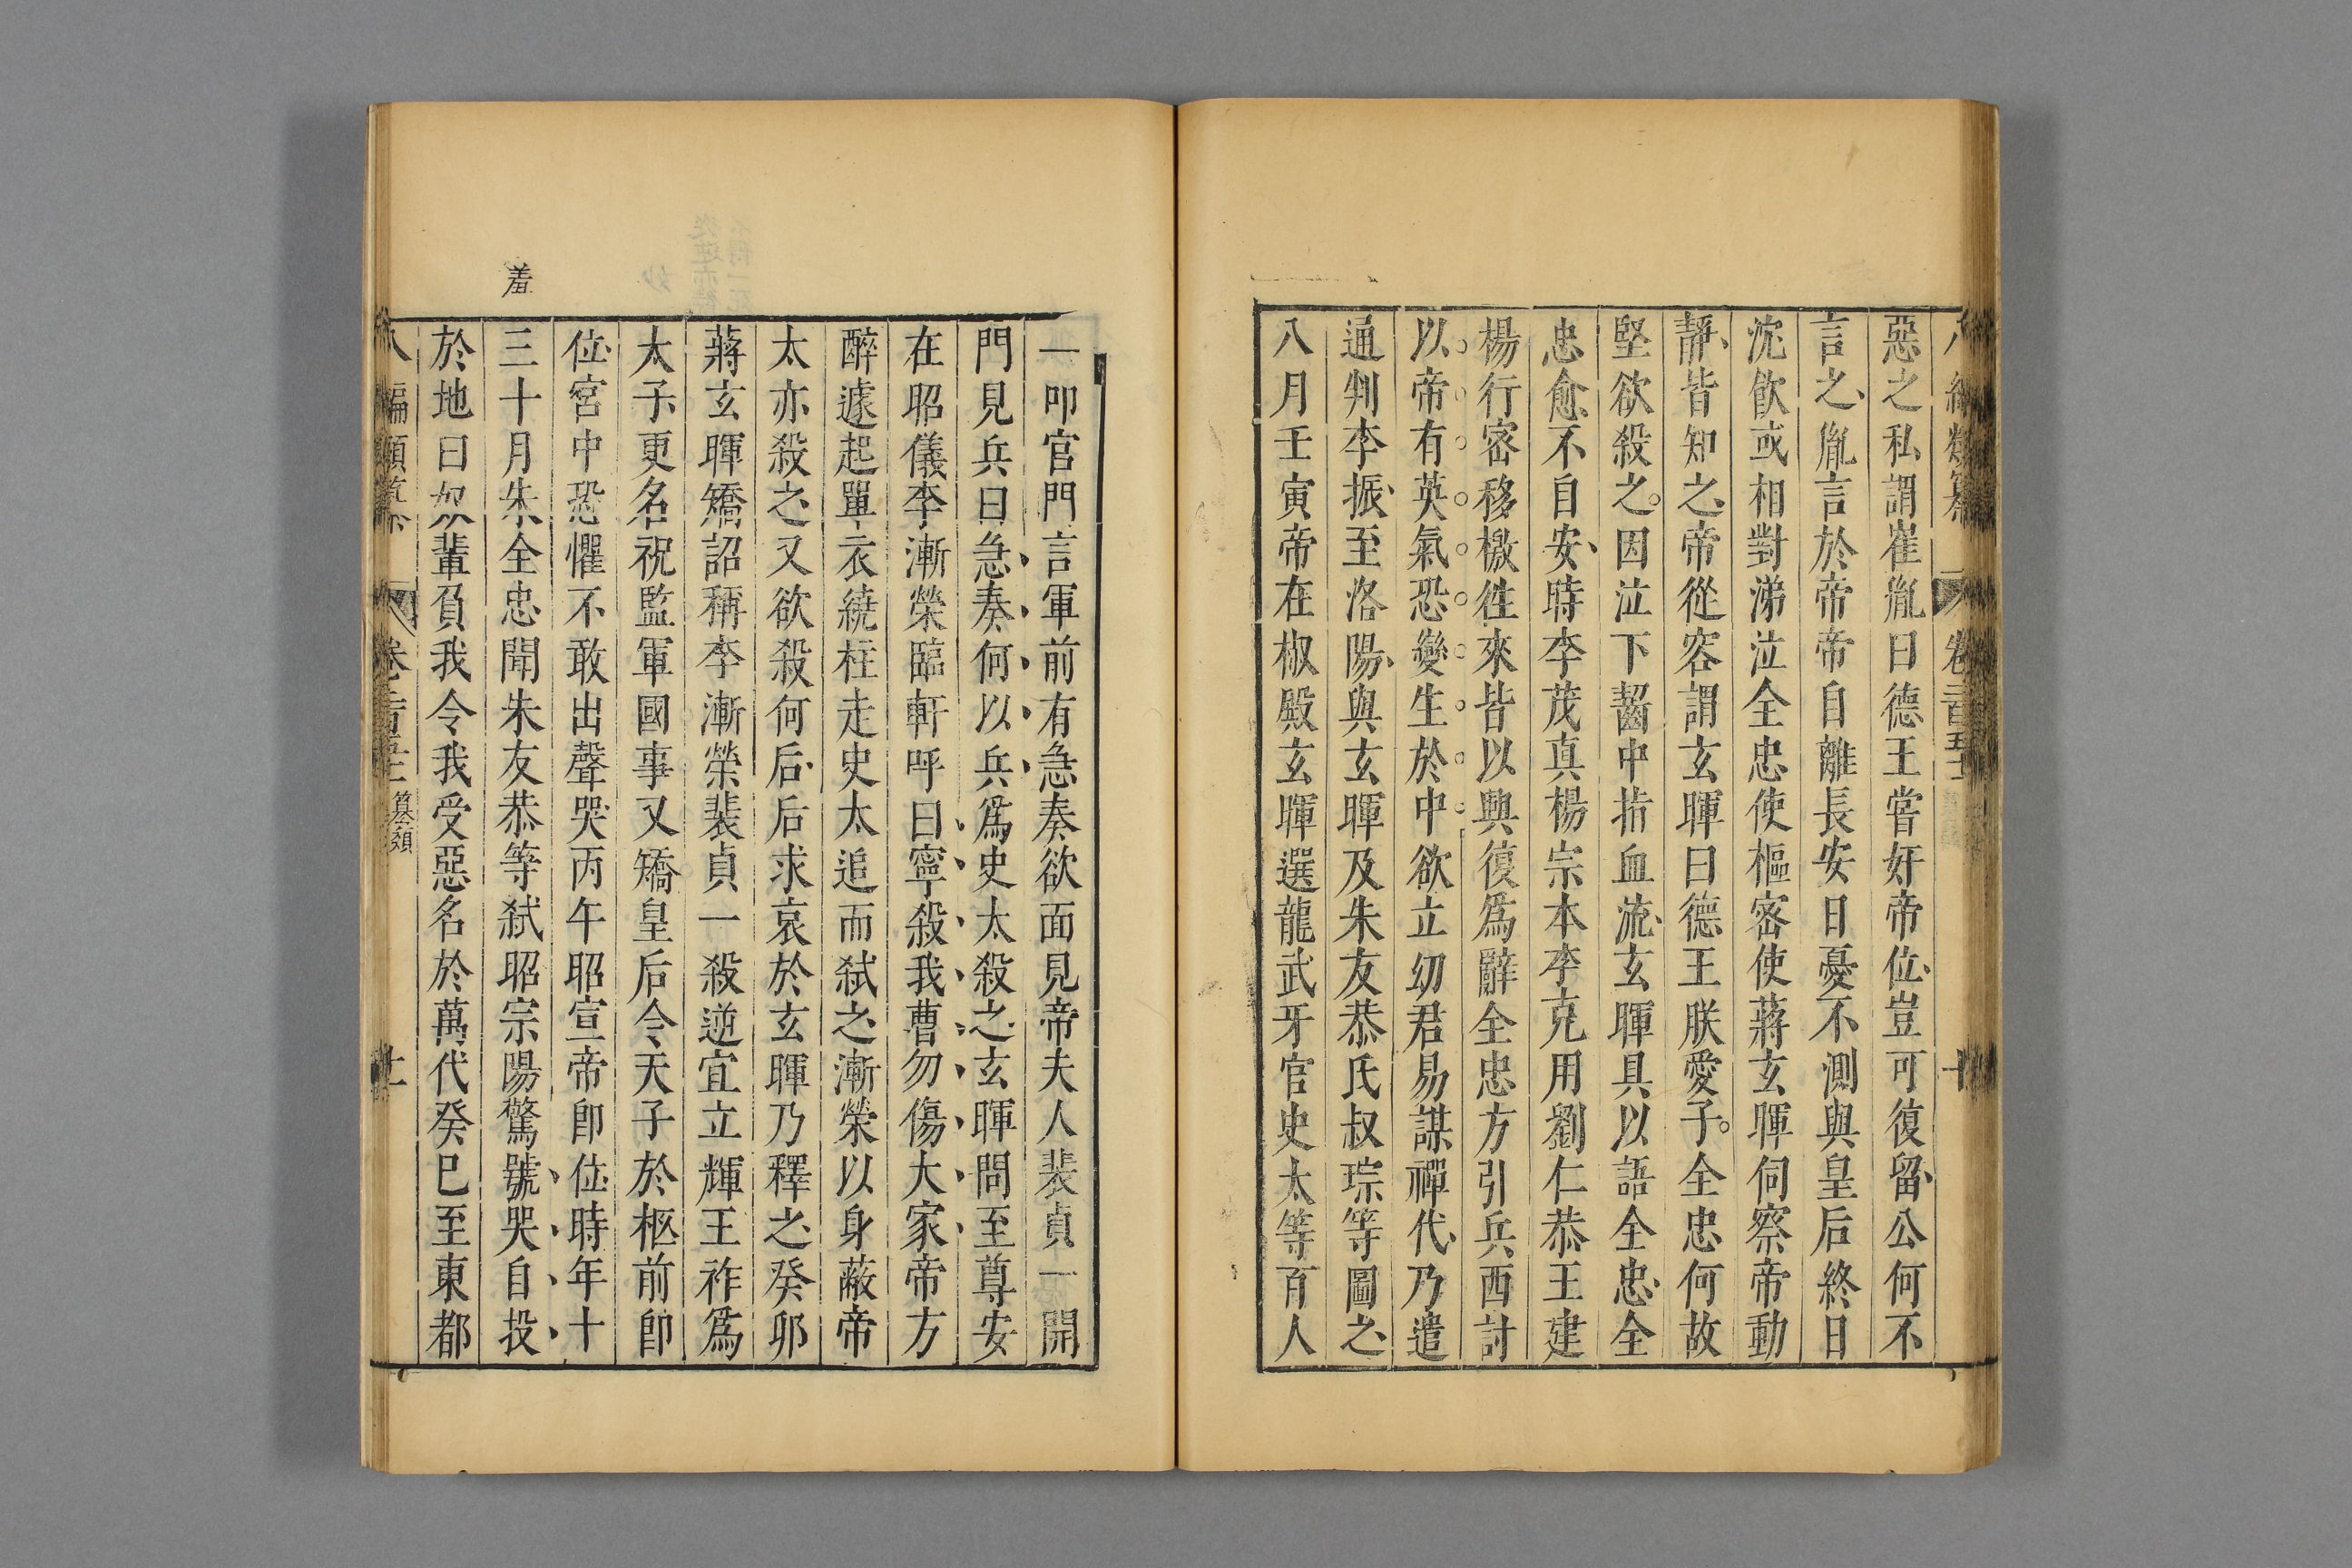 惡之私謂崔胤曰德王嘗奸帝位豈可復留公何不
言之胤言於帝帝自離長安日憂不測與皇后終日
沈飲或相對涕泣全忠使樞密使蔣玄暉伺察帝動
靜皆知之帝從容謂玄暉曰德王朕愛子全忠何故
堅欲殺之因泣下齧中指血流玄暉具以語全忠全
忠愈不自安時李茂真楊宗本李克用劉仁恭王建
楊行密移檄徃來皆以興復爲辭全忠方引兵西討
以帝有英氣恐變生於中欲立幼君易謀禪代乃遣
通判李振至洛陽與玄暉及朱友恭氏叔琮等圖之
八月壬寅帝在椒殿玄暉選龍武牙官史太等百人
叩宫門言軍前有急奏欲面見帝夫人裴貞一開
門見兵曰急奏何以兵爲史太殺之玄暉問至尊安
在昭儀李漸榮臨軒呼曰寧殺我曹勿傷大家帝方
醉遽起單衣繞柱走史太追而弑之漸榮以身蔽帝
太亦殺之又欲殺何后后求哀於玄暉乃釋之癸卯
蔣玄暉矯詔稱李漸榮裴貞一殺逆宜立輝王祚爲
太子更名祝監軍國事又矯皇后令天子於柩前卽
位宮中恐懼不敢出聲哭丙午昭宣帝卽位時年十
三十月朱全忠聞朱友恭等弑昭宗陽驚號哭自投
於地曰奴輩負我令我受惡名於萬代癸巳至東都
羞